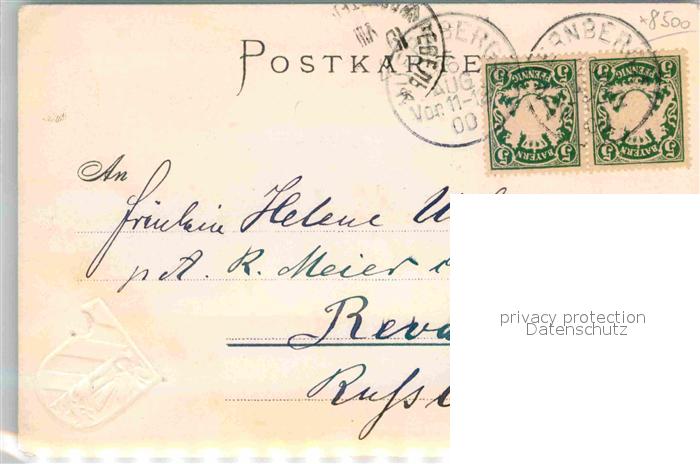 +8500
POSTKARTE
NBERG
AUG
Vor. 11-12
00
РЕВЕЛЬ
5 PFENNIG 5
BAYERN
5 PFENNIG 5
BAYERN
An
Fräulein Helene
p.A. R. Meier
Reva
Russl
privacy protection
Datenschutz